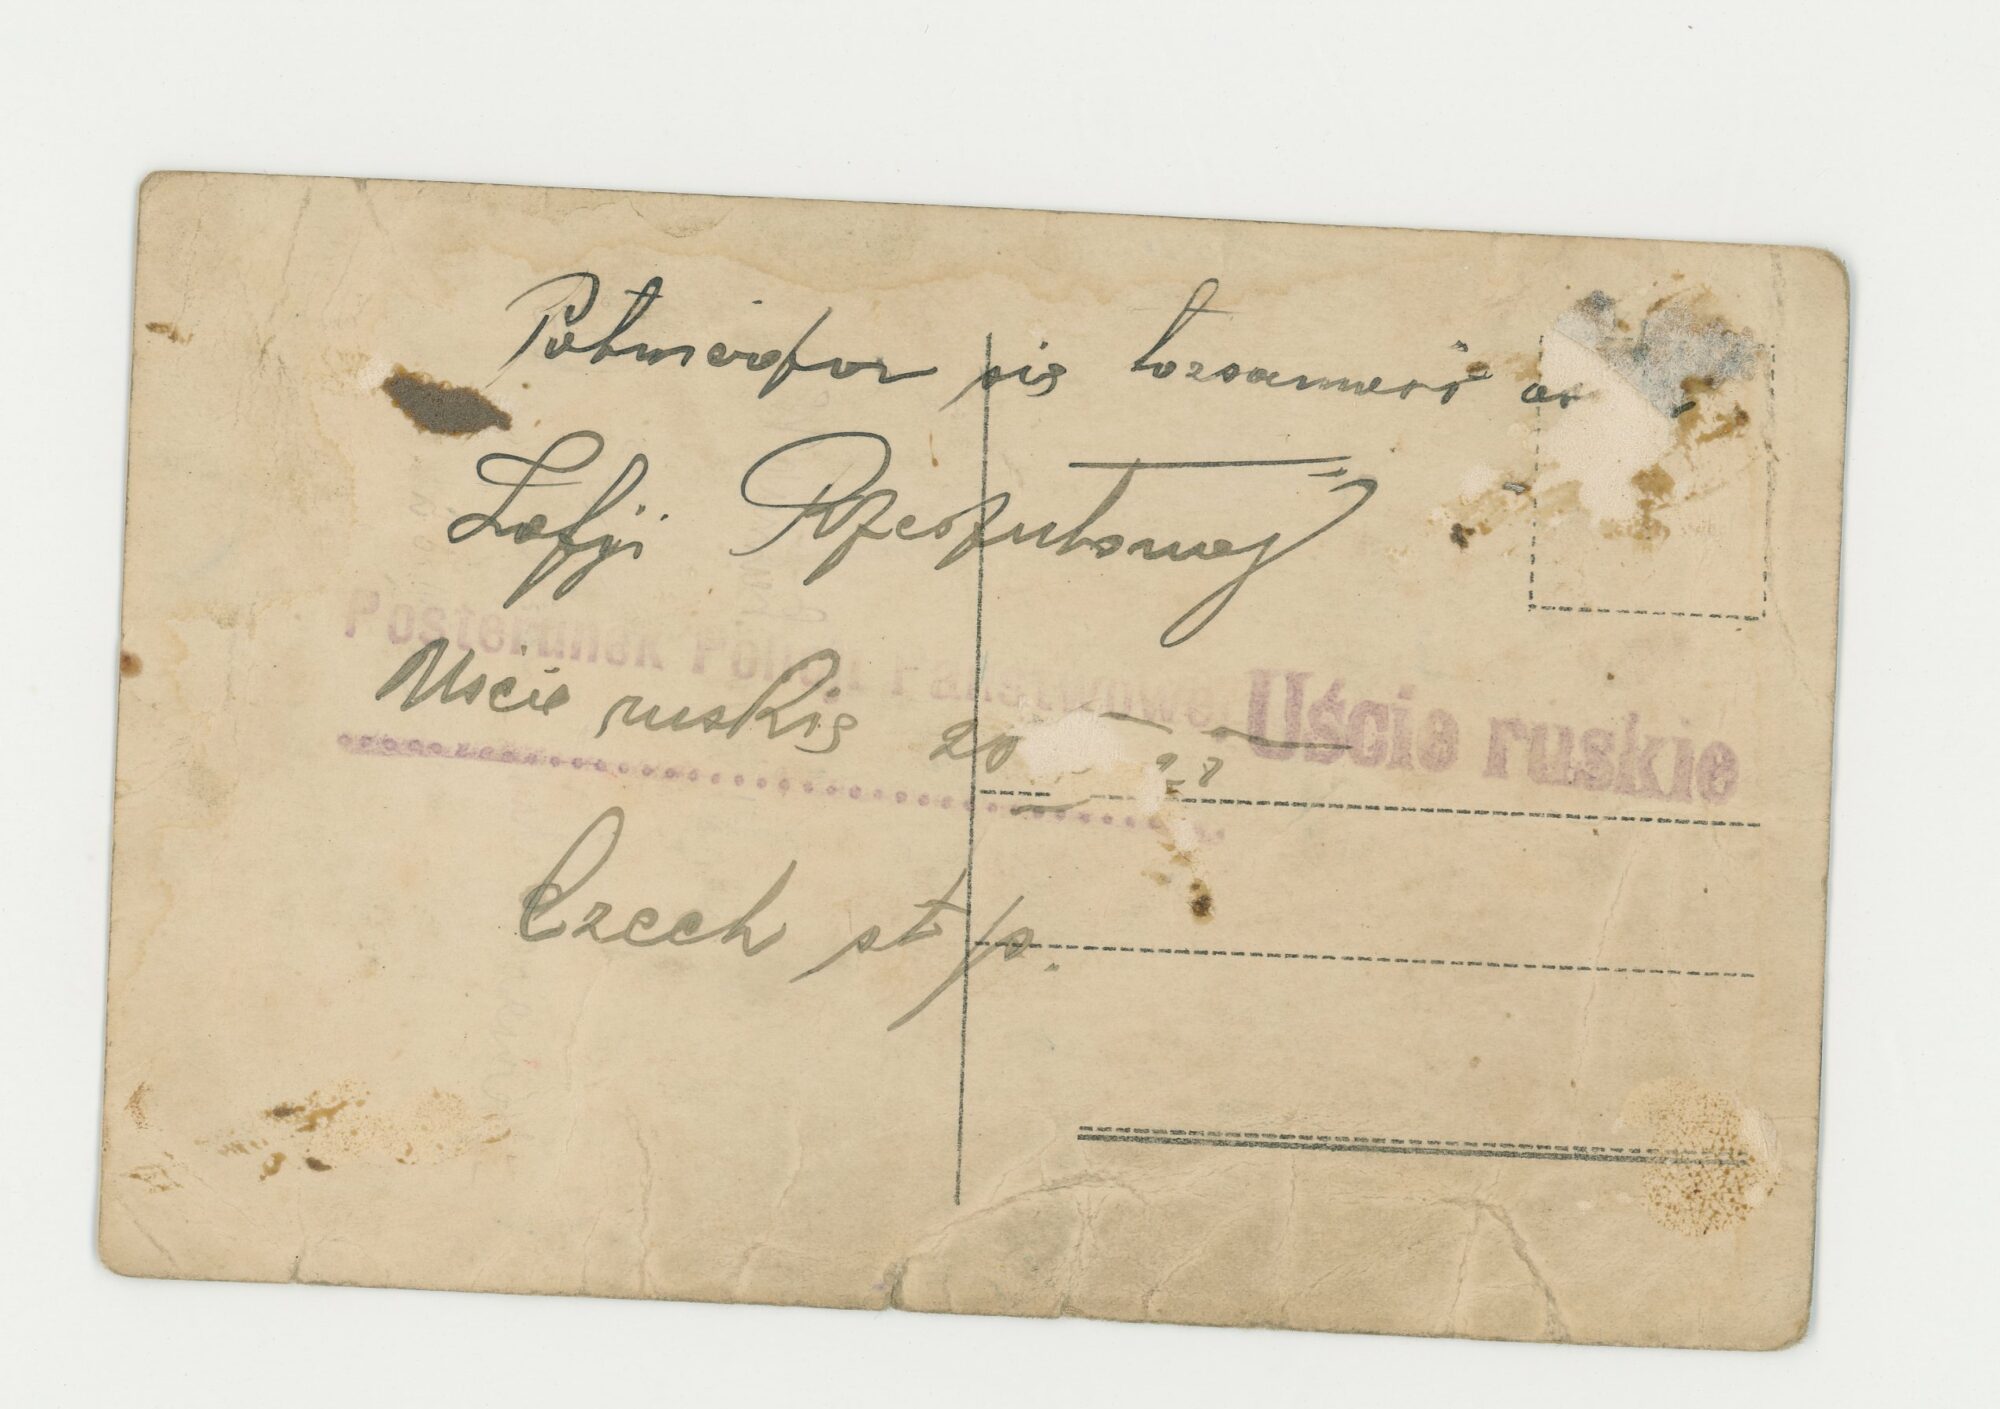 Potwierdza się tozsamość os
Zofji Rzeszutowej
Posterunek Policji Państwowej Uście ruskie
Uscie ruskie 20 28
Czech st. p.